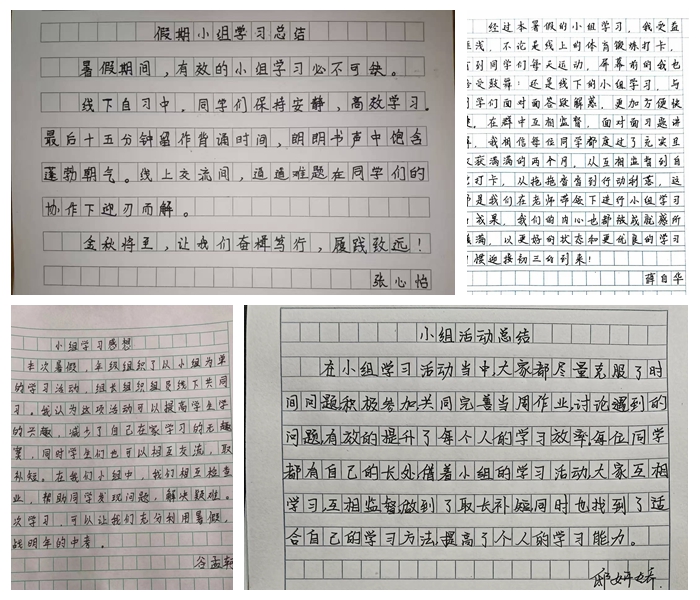 假期小组学习总结
暑假期间，有效的小组学习必不可缺。
线下自习中，同学们保持安静，高效学习。
最后十五分钟留作背诵时间，朗朗书声中饱含
蓬勃朝气。线上交流间，道道难题在同学们的
协作下迎刃而解。
金秋将至，让我们奋楫笃行，履践致远！
张心怡
经过本暑假的小组学习，我受益
浅，不论是线上的体育锻炼打卡，
到同学们每天运动，屏幕前的我也
受鼓舞；还是线下的小组学习，与
学们面对面答疑解惑，更加方便快
，在群中互相监督，面对面习题讲
，我相信每位同学都度过了充实且
获满满的两个月，从互相监督到自
打卡，从拖拖沓沓到行动利落，这
是我们在老师带领下进行小组学习
成果，我们的内心也都被成就感所
满，以更好的状态和更优良的学习
惯迎接初三的到来！
薛自华
小组学习感想
本次暑假，年级组织了从小组为单
的学习活动，组长组织组员线下共同
习。我认为这项活动可以提高学生学
的兴趣，减少了自己在家学习的无趣
，同时学生们也可以相互交流，取
补短。在我们小组中，我们相互检查
业，帮助同学发现问题，解决疑难。
次学习，可以让我们充分利用暑假，
战明年的中考。
谷孟轲
小组活动总结
在小组学习活动当中大家都尽量克服了时
间问题，积极参加共同完善当周作业，讨论遇到的
问题有效的提升了每个人的学习效率。每位同学
都有自己的长处，借着小组的学习活动，大家互相
学习，互相监督，做到了取长补短同时也找到了适
合自己的学习方法，提高了个人的学习能力。
邸妍婷